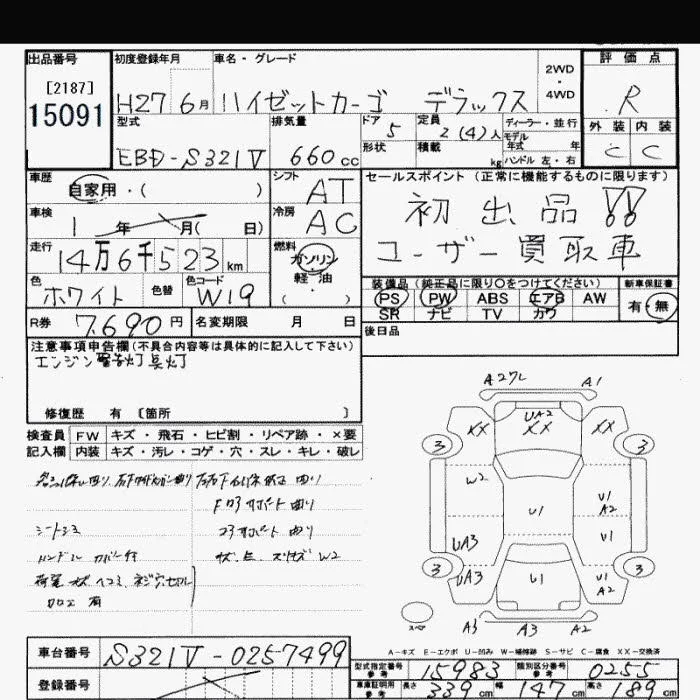 出品番号
[2187]
15091
初度登録年月
H27 6月
車名・グレード
ハイゼットカーゴ デラックス
2WD
・
4WD
評価点
R
外装 内装
C C
型式
EBD-S321V
排気量
660cc
ドア 5
形状
定員
2(4)人
積載 kg
ディーラー・並行
モデル年式 年
ハンドル 左・右
車歴
自家用・( )
シフト AT
セールスポイント(正常に機能するものに限ります)
初出品!!
ユーザー買取車
車検
1年 月( 日)
冷房 AC
走行
14万6千523km
燃料
ガソリン
軽油
( ・ )
色
ホワイト
色替
色コード
W19
装備品(純正品に限り○をつけてください)
PS PW ABS エアB AW
SR ナビ TV カワ
新車保証書
有・無
R券 7,690円
名変期限 月 日
後日品
注意事項申告欄(不具合内容等は具体的に記入して下さい)
エンジン警告灯点灯
修復歴 有 〔箇所 〕
検査員 FW キズ・飛石・ヒビ割・リペア跡・×要
記入欄 内装 キズ・汚レ・コゲ・穴・スレ・キレ・破レ
Fロアサポート曲り
コアサポート曲り
ハンドル カバー付
A27L A1
UA2
XX XX XX
3 3
W2
U1
A2
U1
UA3 U1
3 3
UA3 U1 U1
A2
スペア
A3 A3 A2
A-キズ E-エクボ U-凹み W-補修跡 S-サビ C-腐食 XX-交換済
車台番号 S321V-0257499
登録番号
型式指定番号 参考 15983
類別区分番号 参考 0255
車庫証明用 参考 長さ 339cm 幅 147cm 高さ 189cm